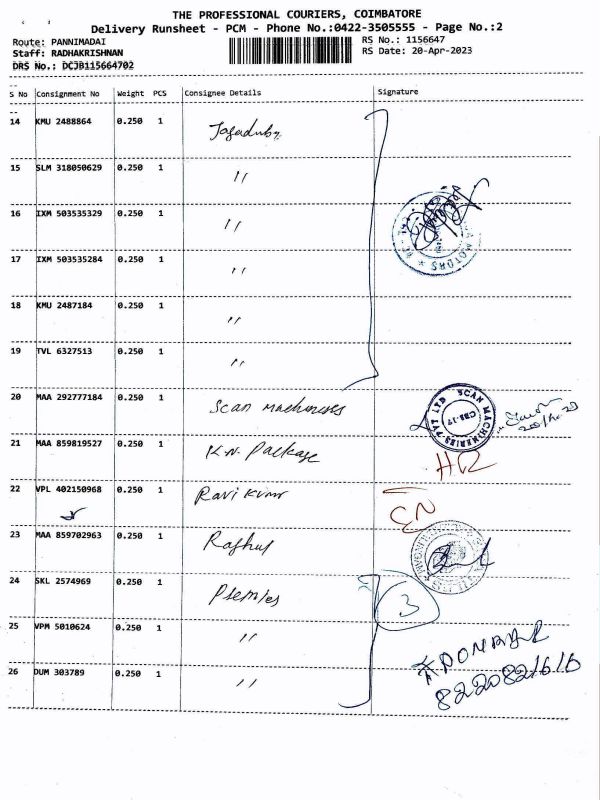 THE PROFESSIONAL COURIERS, COIMBATORE
Delivery Runsheet - PCM - Phone No.:0422-3505555 - Page No.:2
Route: PANNIMADAI
RS No.: 1156647
Staff: RADHAKRISHNAN
RS Date: 20-Apr-2023
DRS No.: DCJB115664702
S No Consignment No Weight PCS Consignee Details Signature
14 KMU 2488864 0.250 1
15 SLM 318050629 0.250 1 "
16 IXM 503535329 0.250 1 "
MOTORS
17 IXM 503535284 0.250 1 "
18 KMU 2487184 0.250 1 "
19 TVL 6327513 0.250 1 "
20 MAA 292777184 0.250 1 Scan machineries
SCAN MACHINERIES PVT LTD
CBE-17
21 MAA 859819527 0.250 1 K.N. Package
22 VPL 402150968 0.250 1 Ravi Kumar
23 MAA 859702963 0.250 1
24 SKL 2574969 0.250 1
3
25 VPM 5010624 0.250 1 "
26 DUM 303789 0.250 1 "